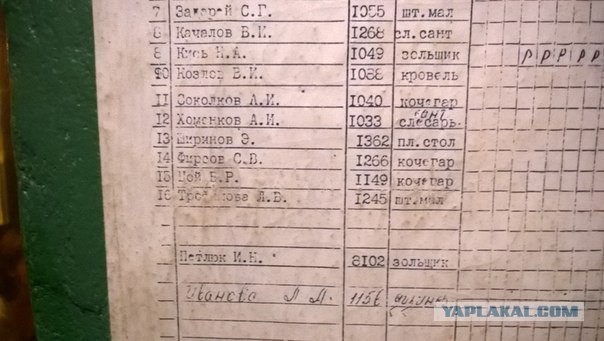 7 Захарей С.Г. 1055 шт.мал
8 Качалов В.И. 1268 сл.сант
8 Кусь Н.А. 1049 зольщик р р р р р
10 Козлов В.И. 1088 кровель
11 Соколков А.И. 1040 кочегар
12 Хоменков А.И. 1033 слесарь сант
13 Ширинов Э. 1362 пл.стол
14 Фирсов С.В. 1266 кочегар
15 Цой Б.Р. 1149 кочегар
16 Л.В. 1245 шт.мал
Петлюк И.Н. 8102 зольщик
Иванова Л.А. 1156
YAPLAKAL.COM